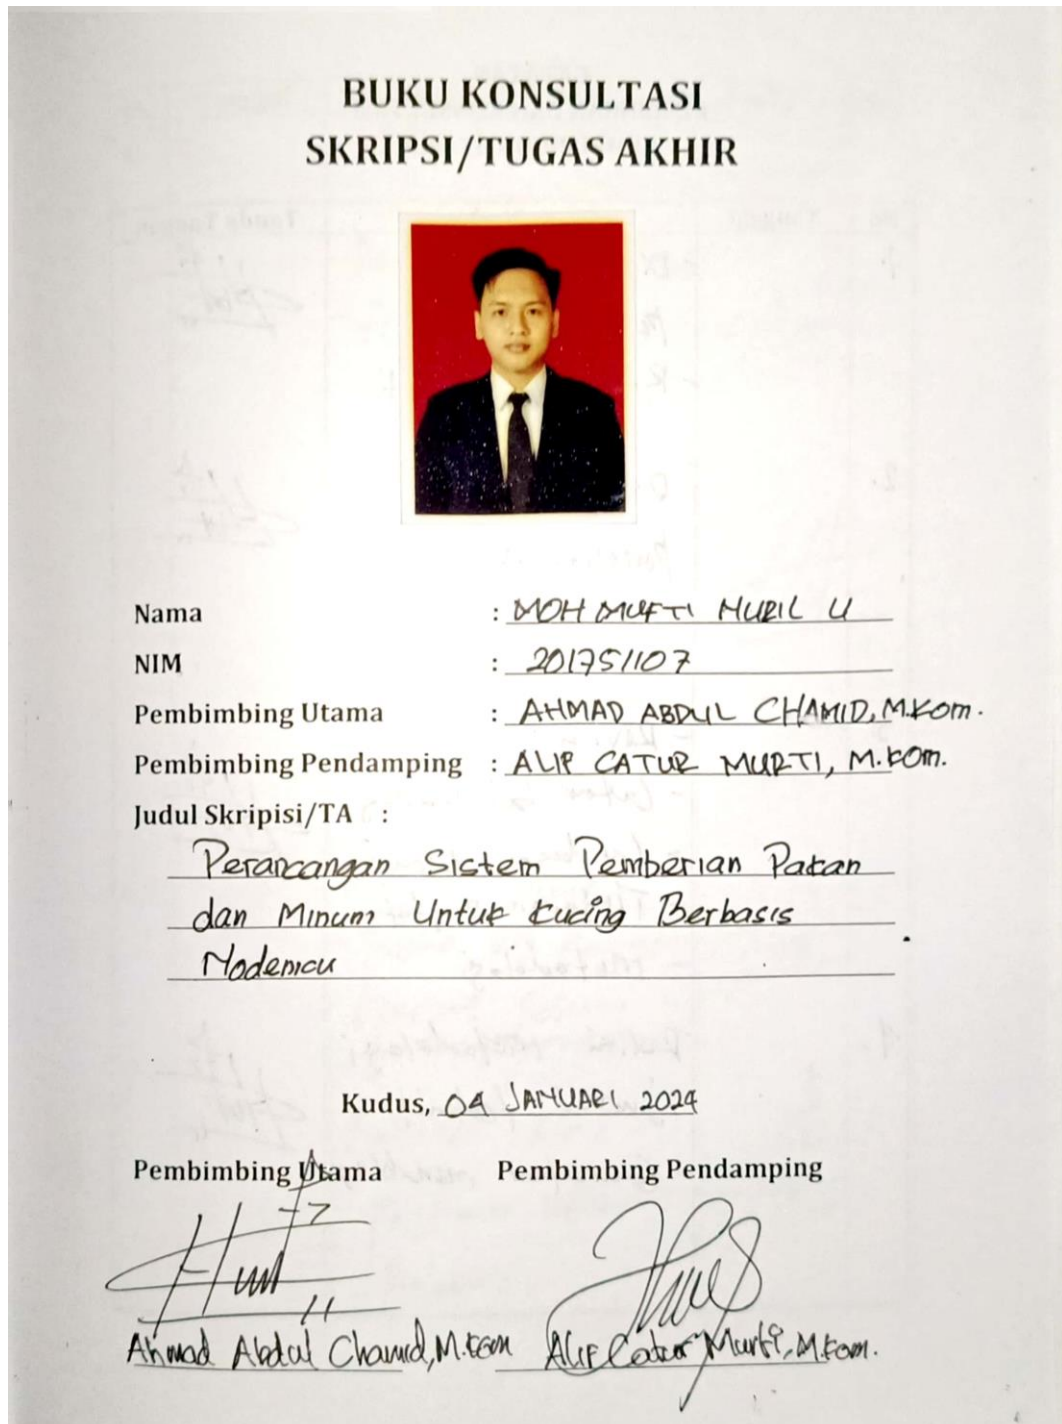 BUKU KONSULTASI
SKRIPSI/TUGAS AKHIR
Nama : MOH MUFTI NURIL U
NIM : 201751107
Pembimbing Utama : AHMAD ABDUL CHAMID, M.Kom.
Pembimbing Pendamping : ALIF CATUR MURTI, M.Kom.
Judul Skripisi/TA :
Perancangan Sistem Pemberian Pakan
dan Minum Untuk Kucing Berbasis
Nodemcu
Kudus, 04 JANUARI 2024
Pembimbing Utama Pembimbing Pendamping
Ahmad Abdul Chamid, M.Kom Alif Catur Murti, M.Kom.